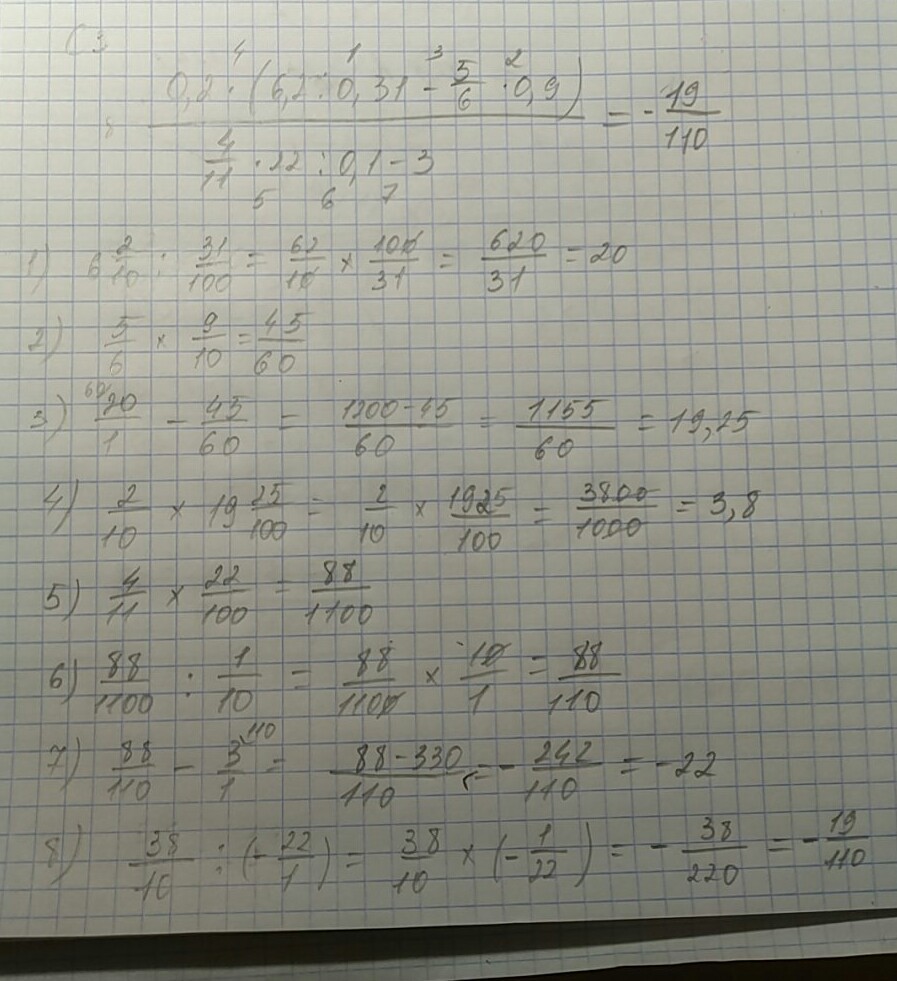 С3
4 1 3 2
0,2 · (6,2 : 0,31 - 5/6 · 0,9)
8 ———————— = - 19/110
4/11 · 22 : 0,1 - 3
5 6 7
1) 6 2/10 : 31/100 = 62/10 × 100/31 = 620/31 = 20
2) 5/6 × 9/10 = 45/60
3) 60/ 20/1 - 45/60 = 1200-45/60 = 1155/60 = 19,25
4) 2/10 × 19 25/100 = 2/10 × 1925/100 = 3800/1000 = 3,8
5) 4/11 × 22/100 = 88/1100
6) 88/1100 : 1/10 = 88/1100 × 10/1 = 88/110
7) 88/110 - 3\110/1 = 88-330/110 = - 242/110 = -22
8) 38/10 : (- 22/1) = 38/10 × (- 1/22) = - 38/220 = - 19/110